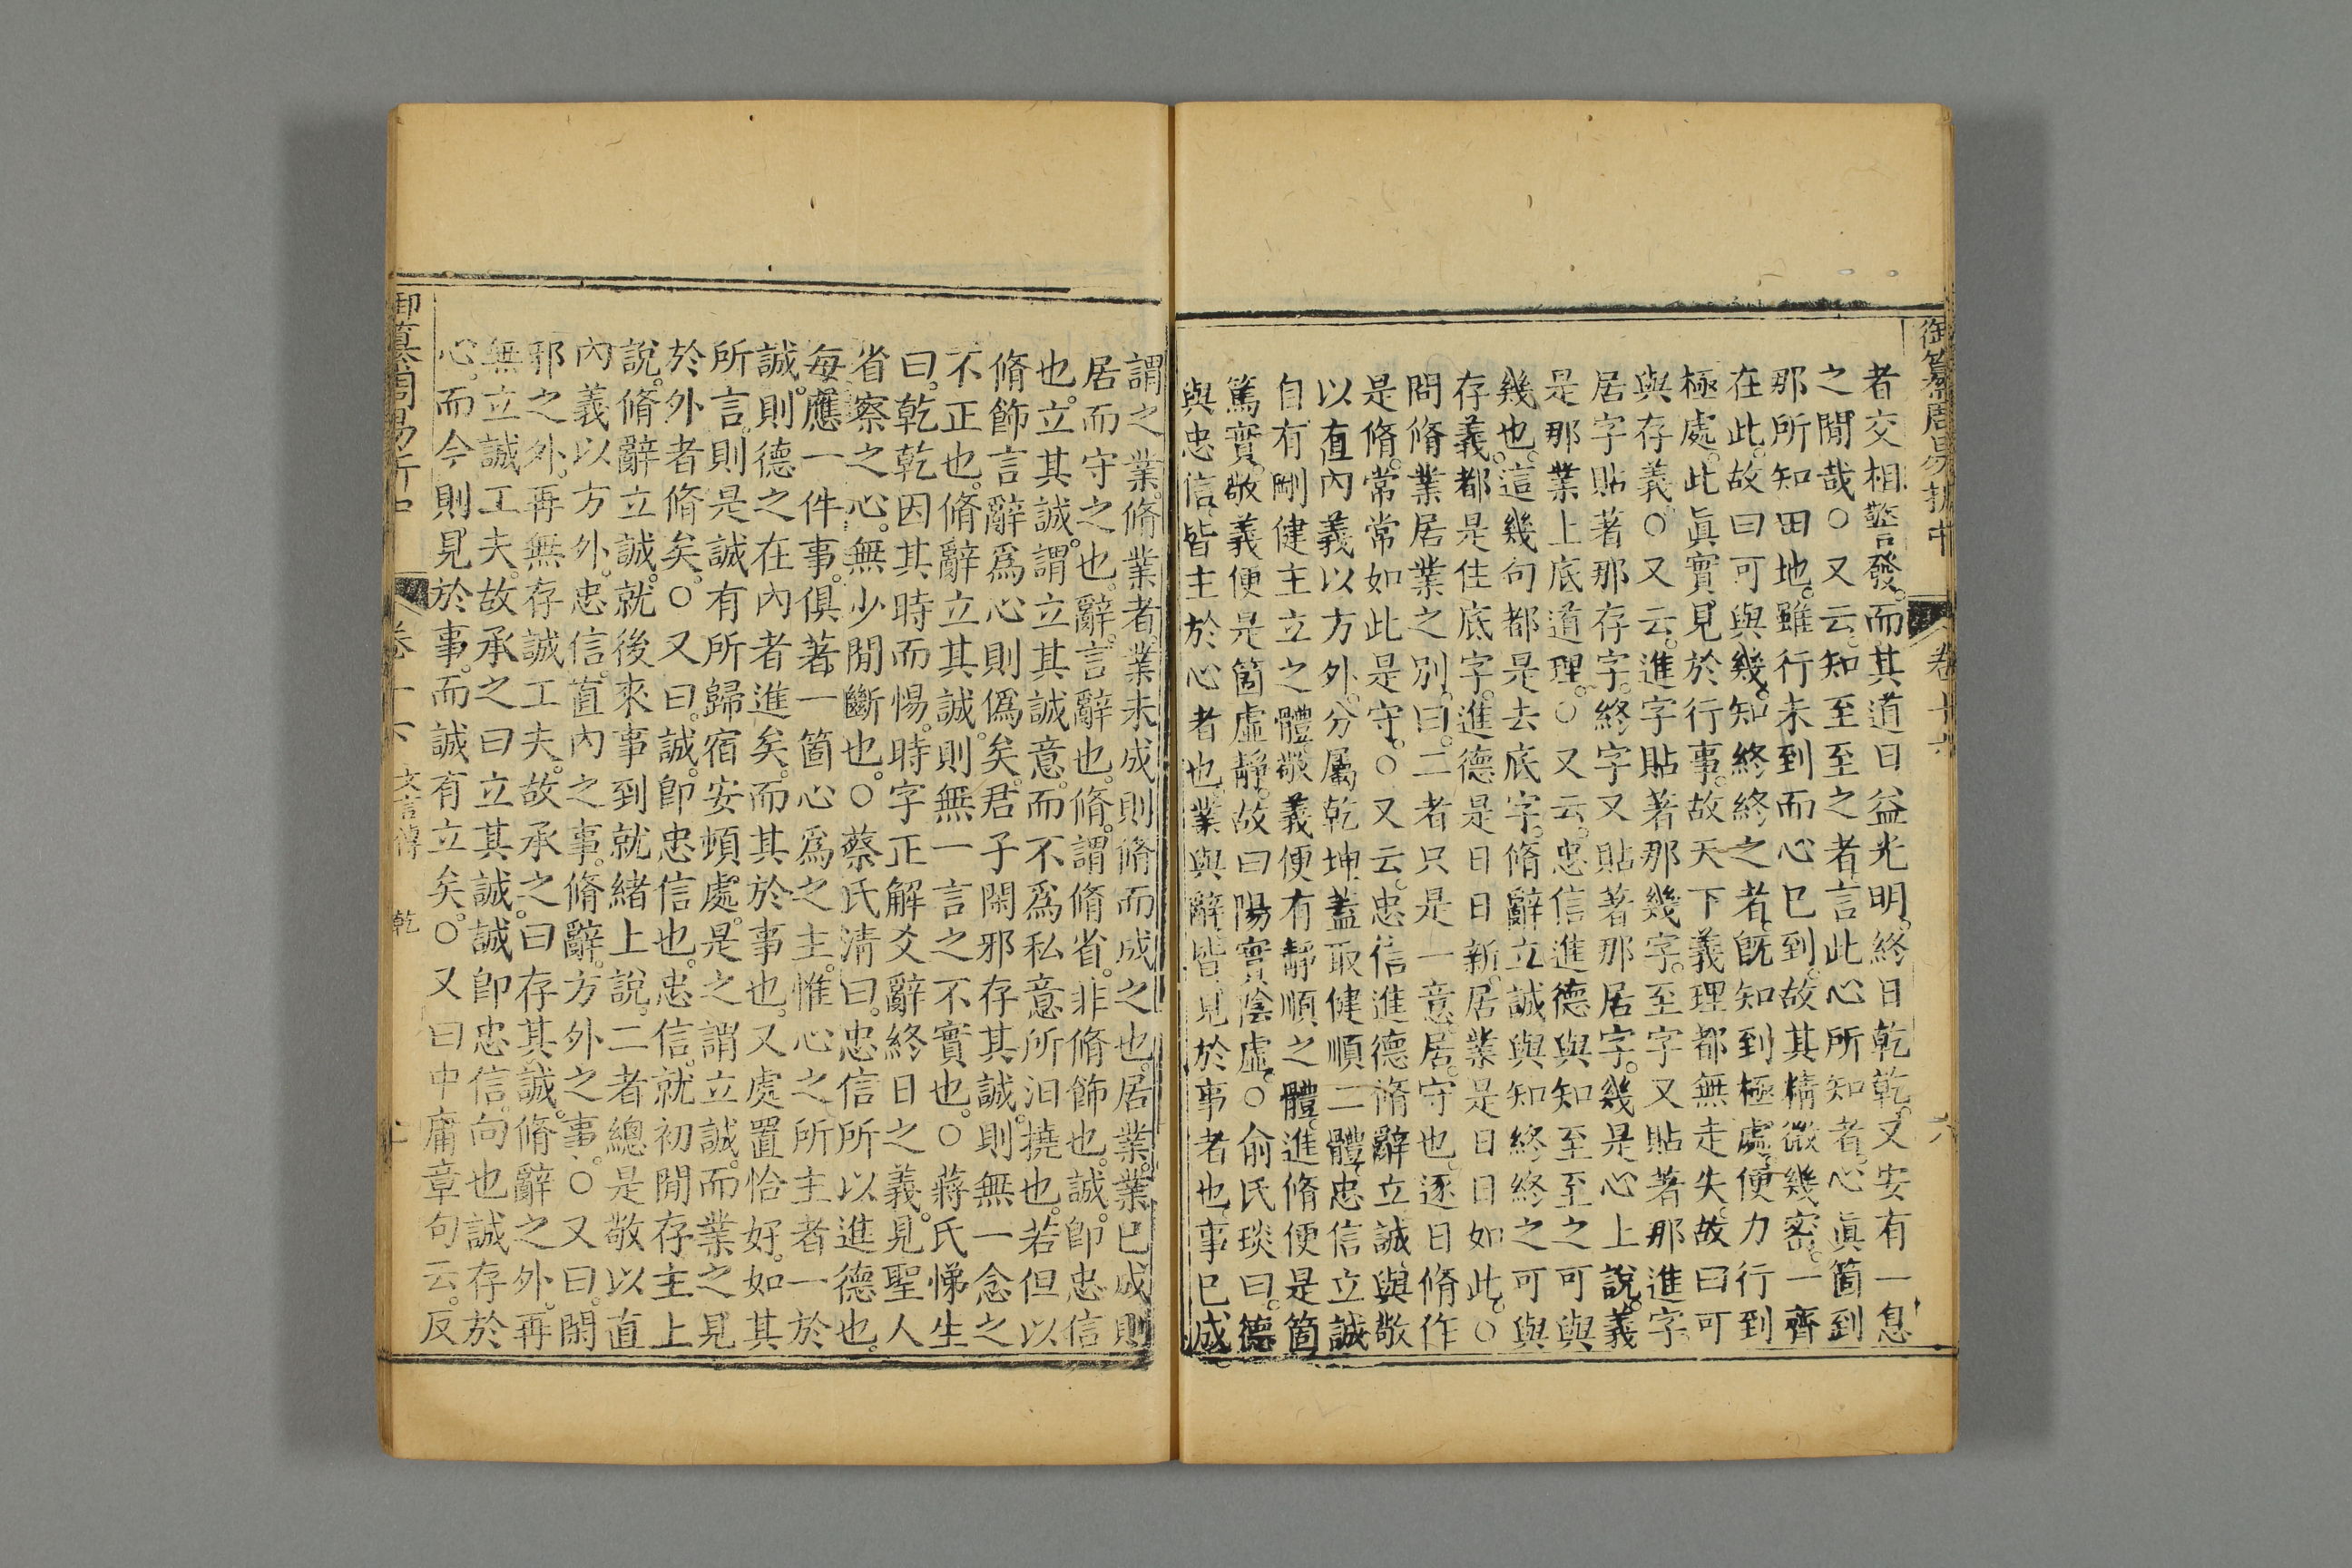 御纂周易折中 卷十六 六
者交相警發。而其道日益光明。終日乾乾。又安有一息
之閒哉。○又云。知至至之者。言此心所知者。心眞箇到
那所知田地。雖行未到而心已到。故其精微幾密。一齊
在此。故曰可與幾。知終終之者。旣知到極處。便力行到
極處。此眞實見於行事。故天下義理都無走失。故曰可
與存義。○又云。進字貼著那幾字。至字又貼著那進字。
居字貼著那存字。終字又貼著那居字。幾是心上說。義
是那業上底道理。○又云。忠信進德與知至至之可與
幾也。這幾句都是去底字。脩辭立誠與知終終之可與
存義。都是住底字。進德是日日新。居業是日日如此。○
問脩業居業之別。曰。二者只是一意。居。守也。逐日脩作
是脩。常常如此是守。○又云。忠信進德脩辭立誠。與敬
以直內義以方外。分屬乾坤。蓋取健順二體。忠信立誠
自有剛健主立之體。敬義便有靜順之體。進脩便是箇
篤實。敬義便是箇虛靜。故曰陽實陰虛。○俞氏琰曰。德
與忠信。皆主於心者也。業與辭。皆見於事者也。事已成。
謂之業。脩業者。業未成則脩而成之也。居業。業已成則
居而守之也。辭。言辭也。脩。謂脩省。非脩飾也。誠。卽忠信
也。立其誠。謂立其誠意。而不爲私意所汩撓也。若但以
脩飾言辭爲心則僞矣。君子閑邪存其誠。則無一念之
不正也。脩辭立其誠。則無一言之不實也。○蔣氏悌生
曰。乾乾因其時而惕。時字正解爻辭終日之義。見聖人
省察之心。無少閒斷也。○蔡氏淸曰。忠信所以進德也。
每應一件事。俱著一箇心爲之主。惟心之所主者一於
誠。則德之在內者進矣。而其於事也。又處置恰好。如其
所言。則是誠有所歸宿安頓處。是之謂立誠。而業之見
於外者脩矣。○又曰。誠。卽忠信也。忠信。就初閒存主上
說。脩辭立誠。就後來事到就緒上說。二者總是敬以直
內義以方外。忠信。直內之事。脩辭。方外之事。○又曰。閑
邪之外。再無存誠工夫。故承之曰存其誠。脩辭之外。再
無立誠工夫。故承之曰立其誠。誠卽忠信。向也誠存於
心。而今則見於事。而誠有立矣。○又曰中庸章句云。反
御纂周易折中 卷十六 文言傳 乾